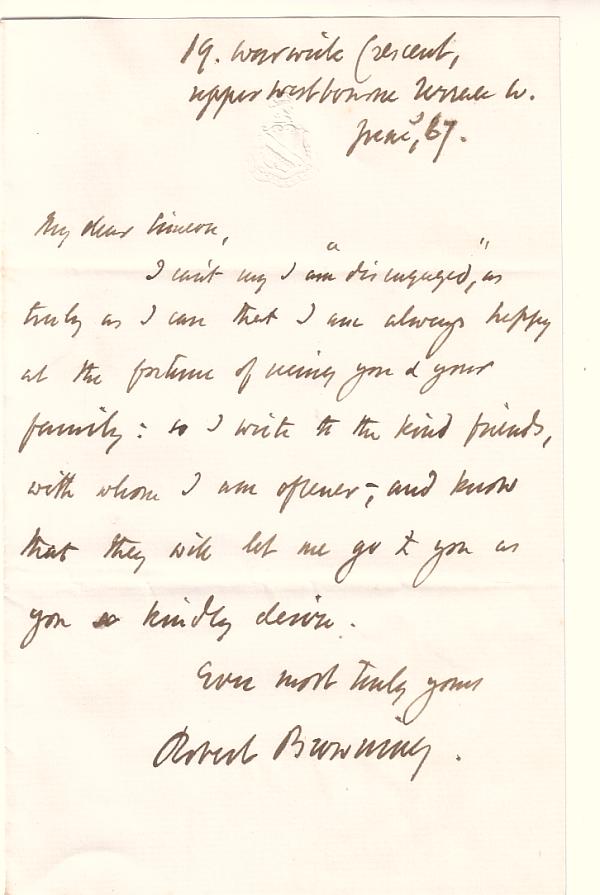 19. Warwick Crescent,
Upper Westbourne Terrace W.
June 3, 67.
My dear Simeon,
I can't say I am "disengaged," as
truly as I can that I am always happy
at the fortune of seeing you & your
family: so I write to the kind friends,
with whom I am oftener, and know
that they will let me go to you as
you so kindly desire.
Ever most truly yours
Robert Browning.